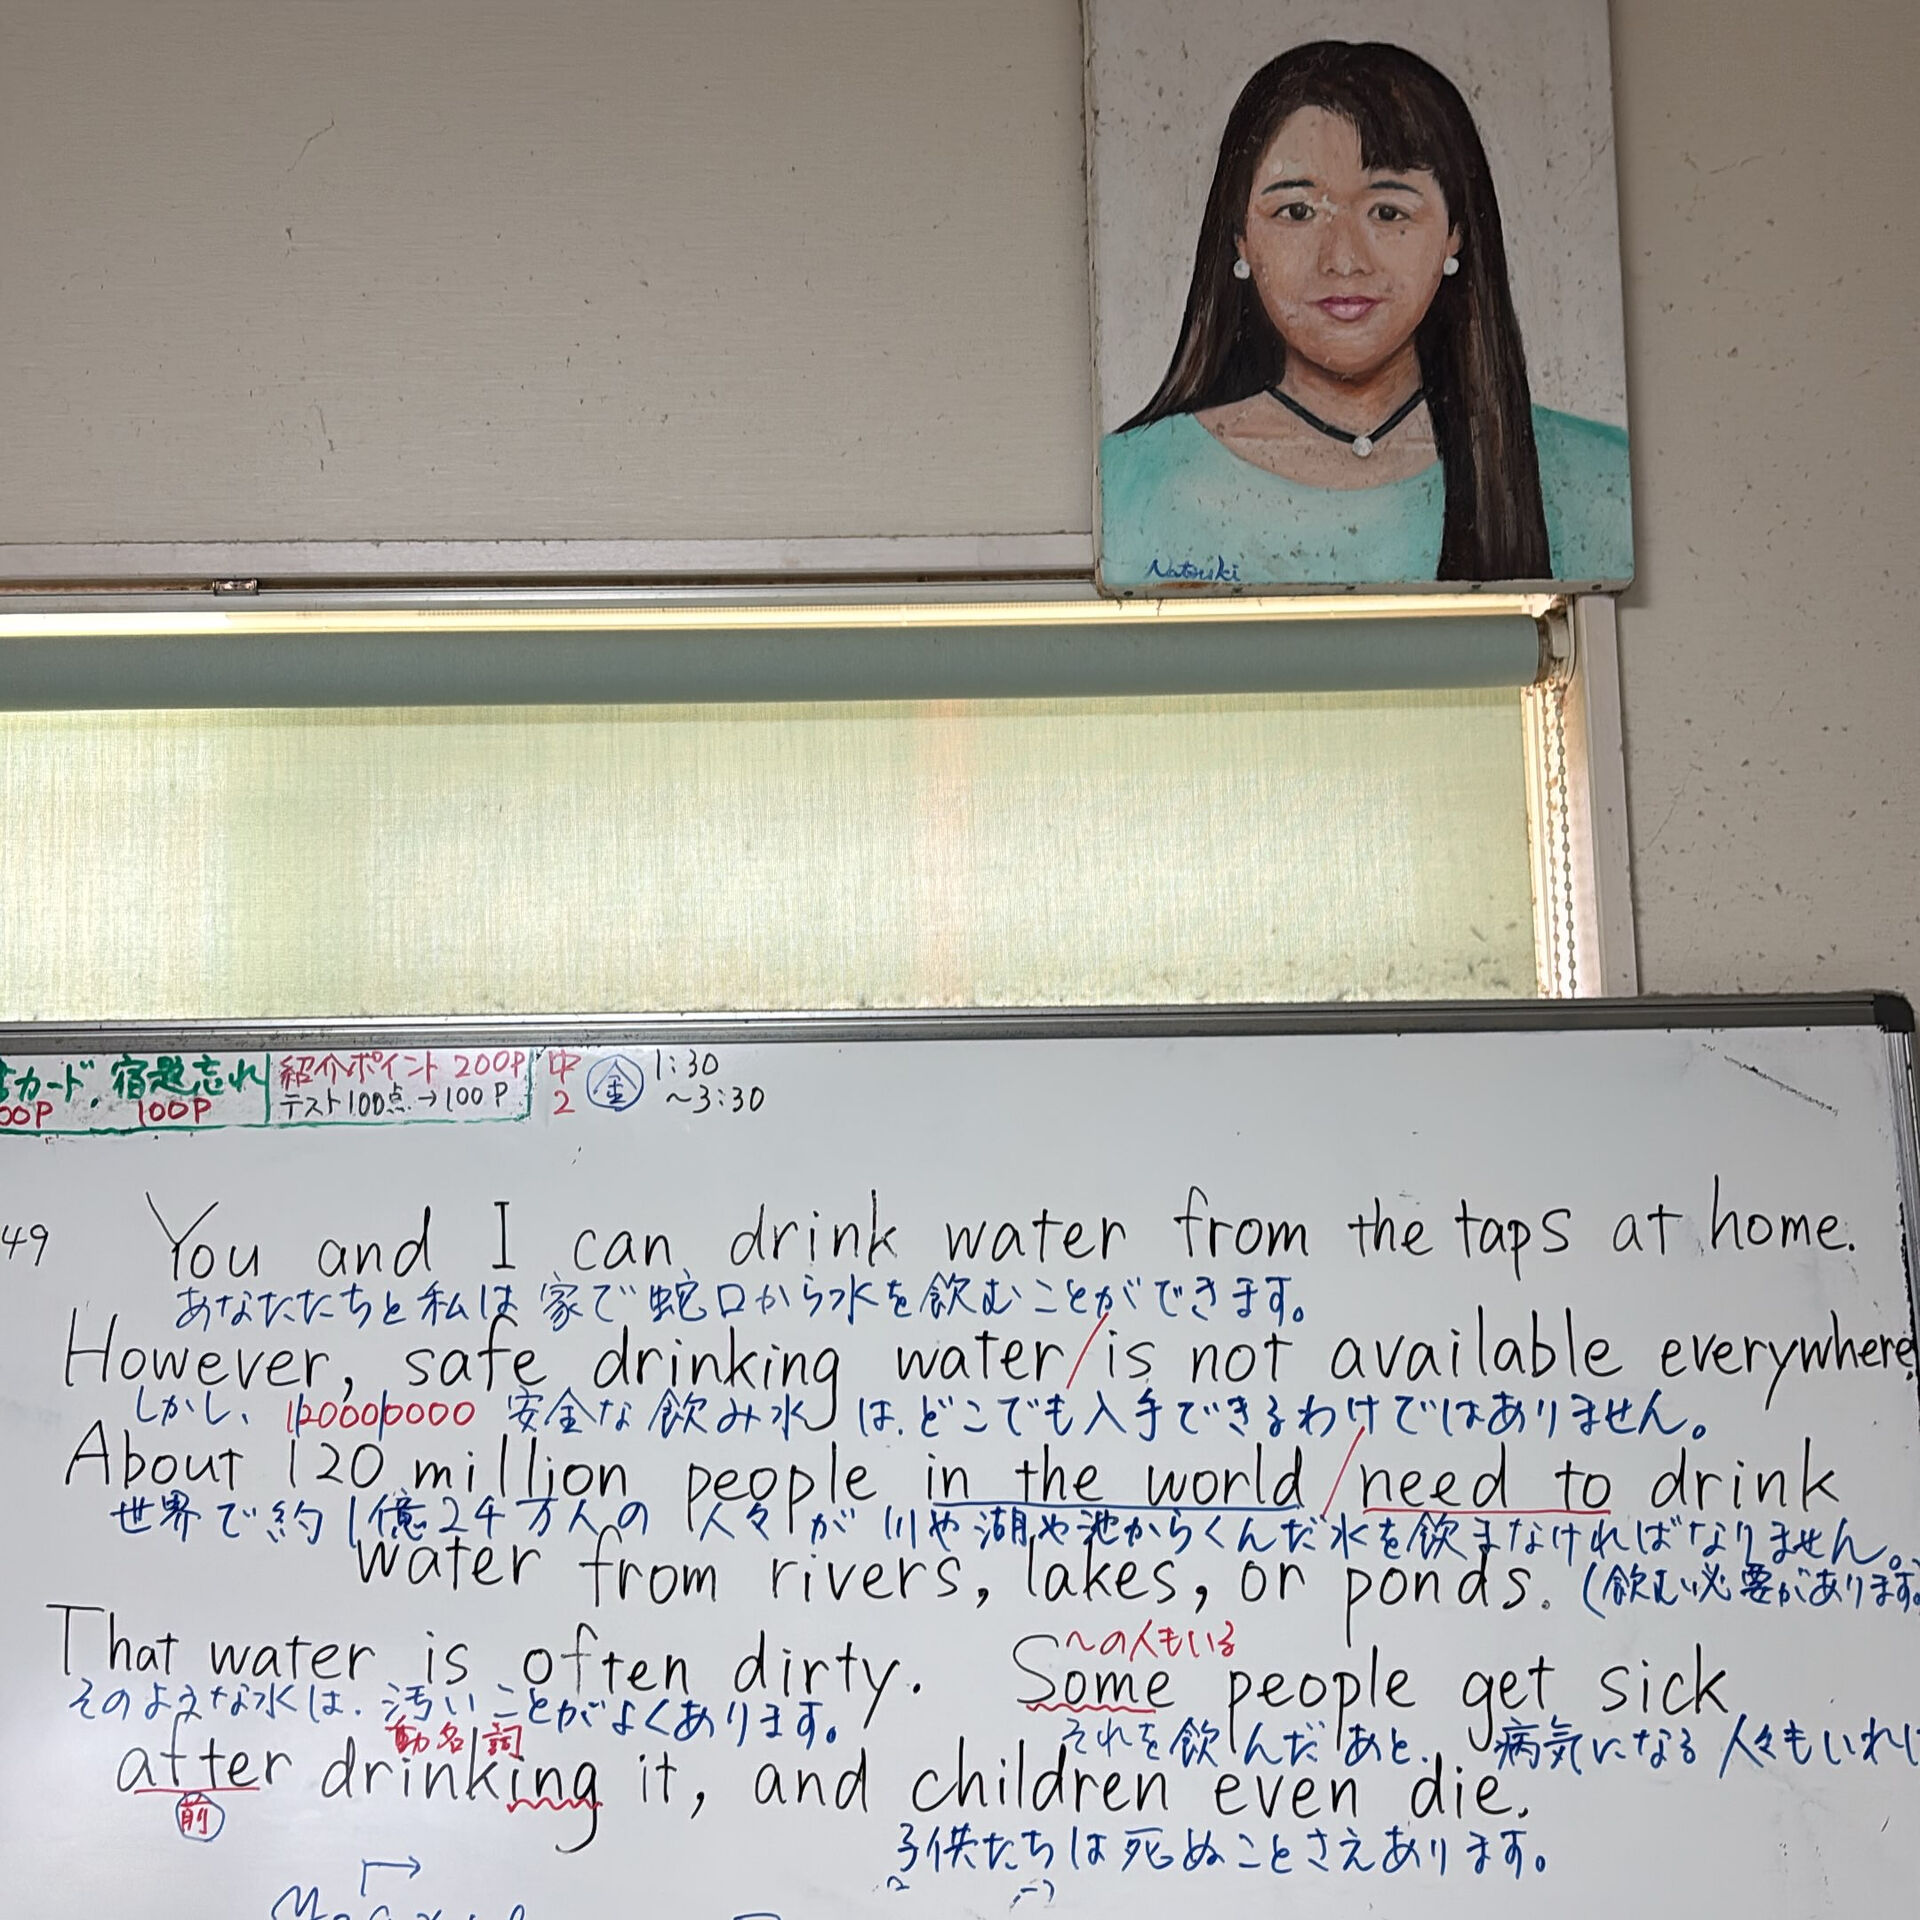 Natsuki
カード、宿題忘れ 紹介ポイント 200P 中 金 1:30
00P 100P テスト100点→100P 2 ~3:30
49 You and I can drink water from the taps at home.
あなたたちと私は家で蛇口から水を飲むことができます。
However, safe drinking water / is not available everywhere.
しかし、 120000000 安全な飲み水は、どこでも入手できるわけではありません。
About 120 million people in the world / need to drink
世界で約1億2千万人の人々が川や湖や池からくんだ水を飲まなければなりません。
water from rivers, lakes, or ponds. (飲む必要があります。
~の人もいる
That water is often dirty. Some people get sick
そのような水は、汚いことがよくあります。 それを飲んだあと、病気になる人々もいれば
動名詞
after drinking it, and children even die.
前
子供たちは死ぬことさえあります。